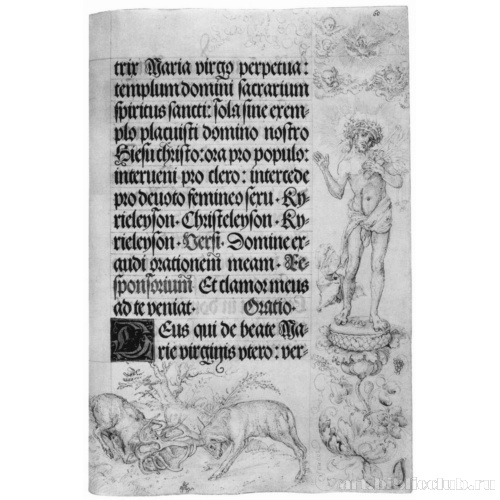 trix Maria virgo perpetua:
templum domini sacrarium
spiritus sancti: sola sine exem-
plo placuisti domino nostro
Hiesu christo: ora pro populo:
interueni pro clero: intercede
pro deuoto femineo sexu. Ky-
rieleyson. Christeleyson. Ky-
rieleyson. Versi. Domine ex-
audi orationem meam. Re-
sponsorium. Et clamor meus
ad te veniat. Oratio.
DEus qui de beate Ma-
rie virginis vtero: ver-
artbiblioclub.ru